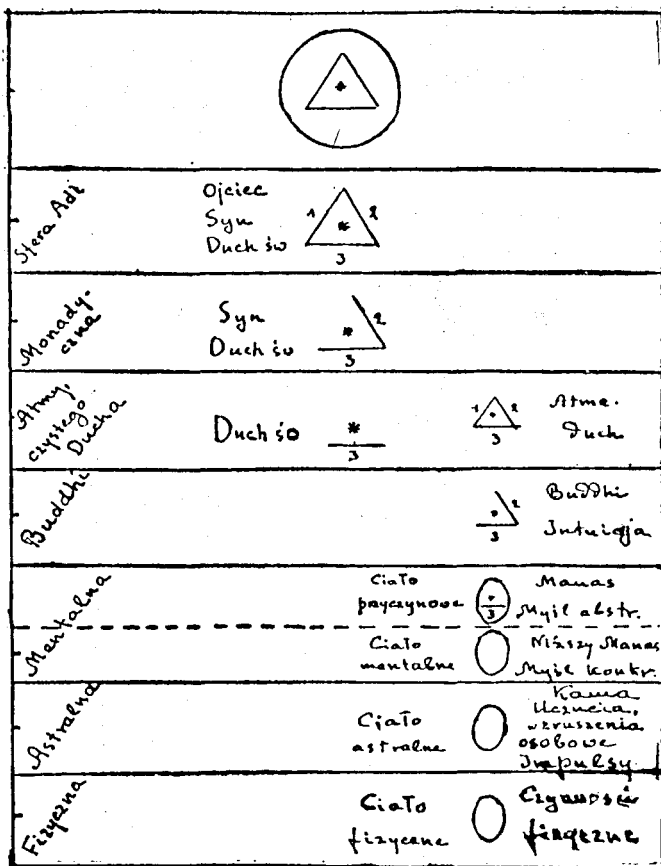 Sfera Adi
Ojciec
Syn
Duch św
1 2
3
Monady-
czna
Syn
Duch św
2
3
Atmy,
czystego
Ducha
Duch św
3
1 2
3
Atma.
Duch
Buddhi
2
3
Buddhi
Intuicja
Mentalna
Ciało
przyczynowe
3
Manas
Myśl abstr.
Ciało
mentalne
Niższy Manas
Myśl konkr.
Astralna
Ciało
astralne
Kama
Uczucia,
wzruszenia
osobowe
Impulsy
Fizyczna
Ciało
fizyczne
Czynności
fizyczne